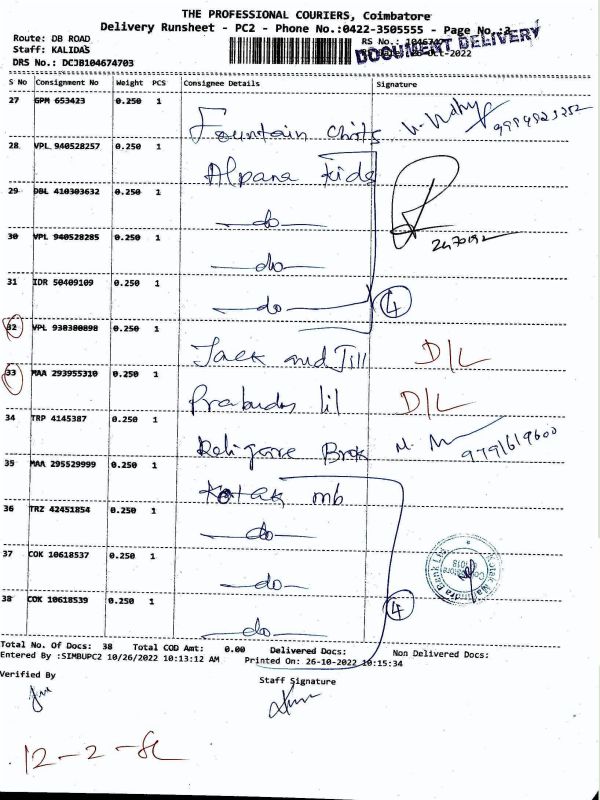 THE PROFESSIONAL COURIERS, Coimbatore
Delivery Runsheet - PC2 - Phone No.:0422-3505555 - Page No.:3
Route: DB ROAD
DOCUMENT DELIVERY
Staff: KALIDAS
DRS No.: DCJB104674703
S No Consignment No Weight PCS Consignee Details Signature
27 GPM 653423 0.250 1
Fountain
28 VPL 940528257 0.250 1
Alpana Kids
29 DBL 410303632 0.250 1
do
30 VPL 940528285 0.250 1
do
31 IDR 50409109 0.250 1
do 4
32 VPL 930380898 0.250 1
Jack and Jill D/L
33 MAA 293955310 0.250 1
Prabudas lil D/L
34 TRP 4145387 0.250 1
Religare Brok 9791619600
35 MAA 295529999 0.250 1
Kotak mb
36 TRZ 42451854 0.250 1
do
37 COK 10618537 0.250 1
do
38 COK 10618539 0.250 1
do 4
Total No. Of Docs: 38 Total COD Amt: 0.00 Delivered Docs: Non Delivered Docs:
Entered By :SIMBUPC2 10/26/2022 10:13:12 AM Printed On: 26-10-2022 10:15:34
Verified By
Staff Signature